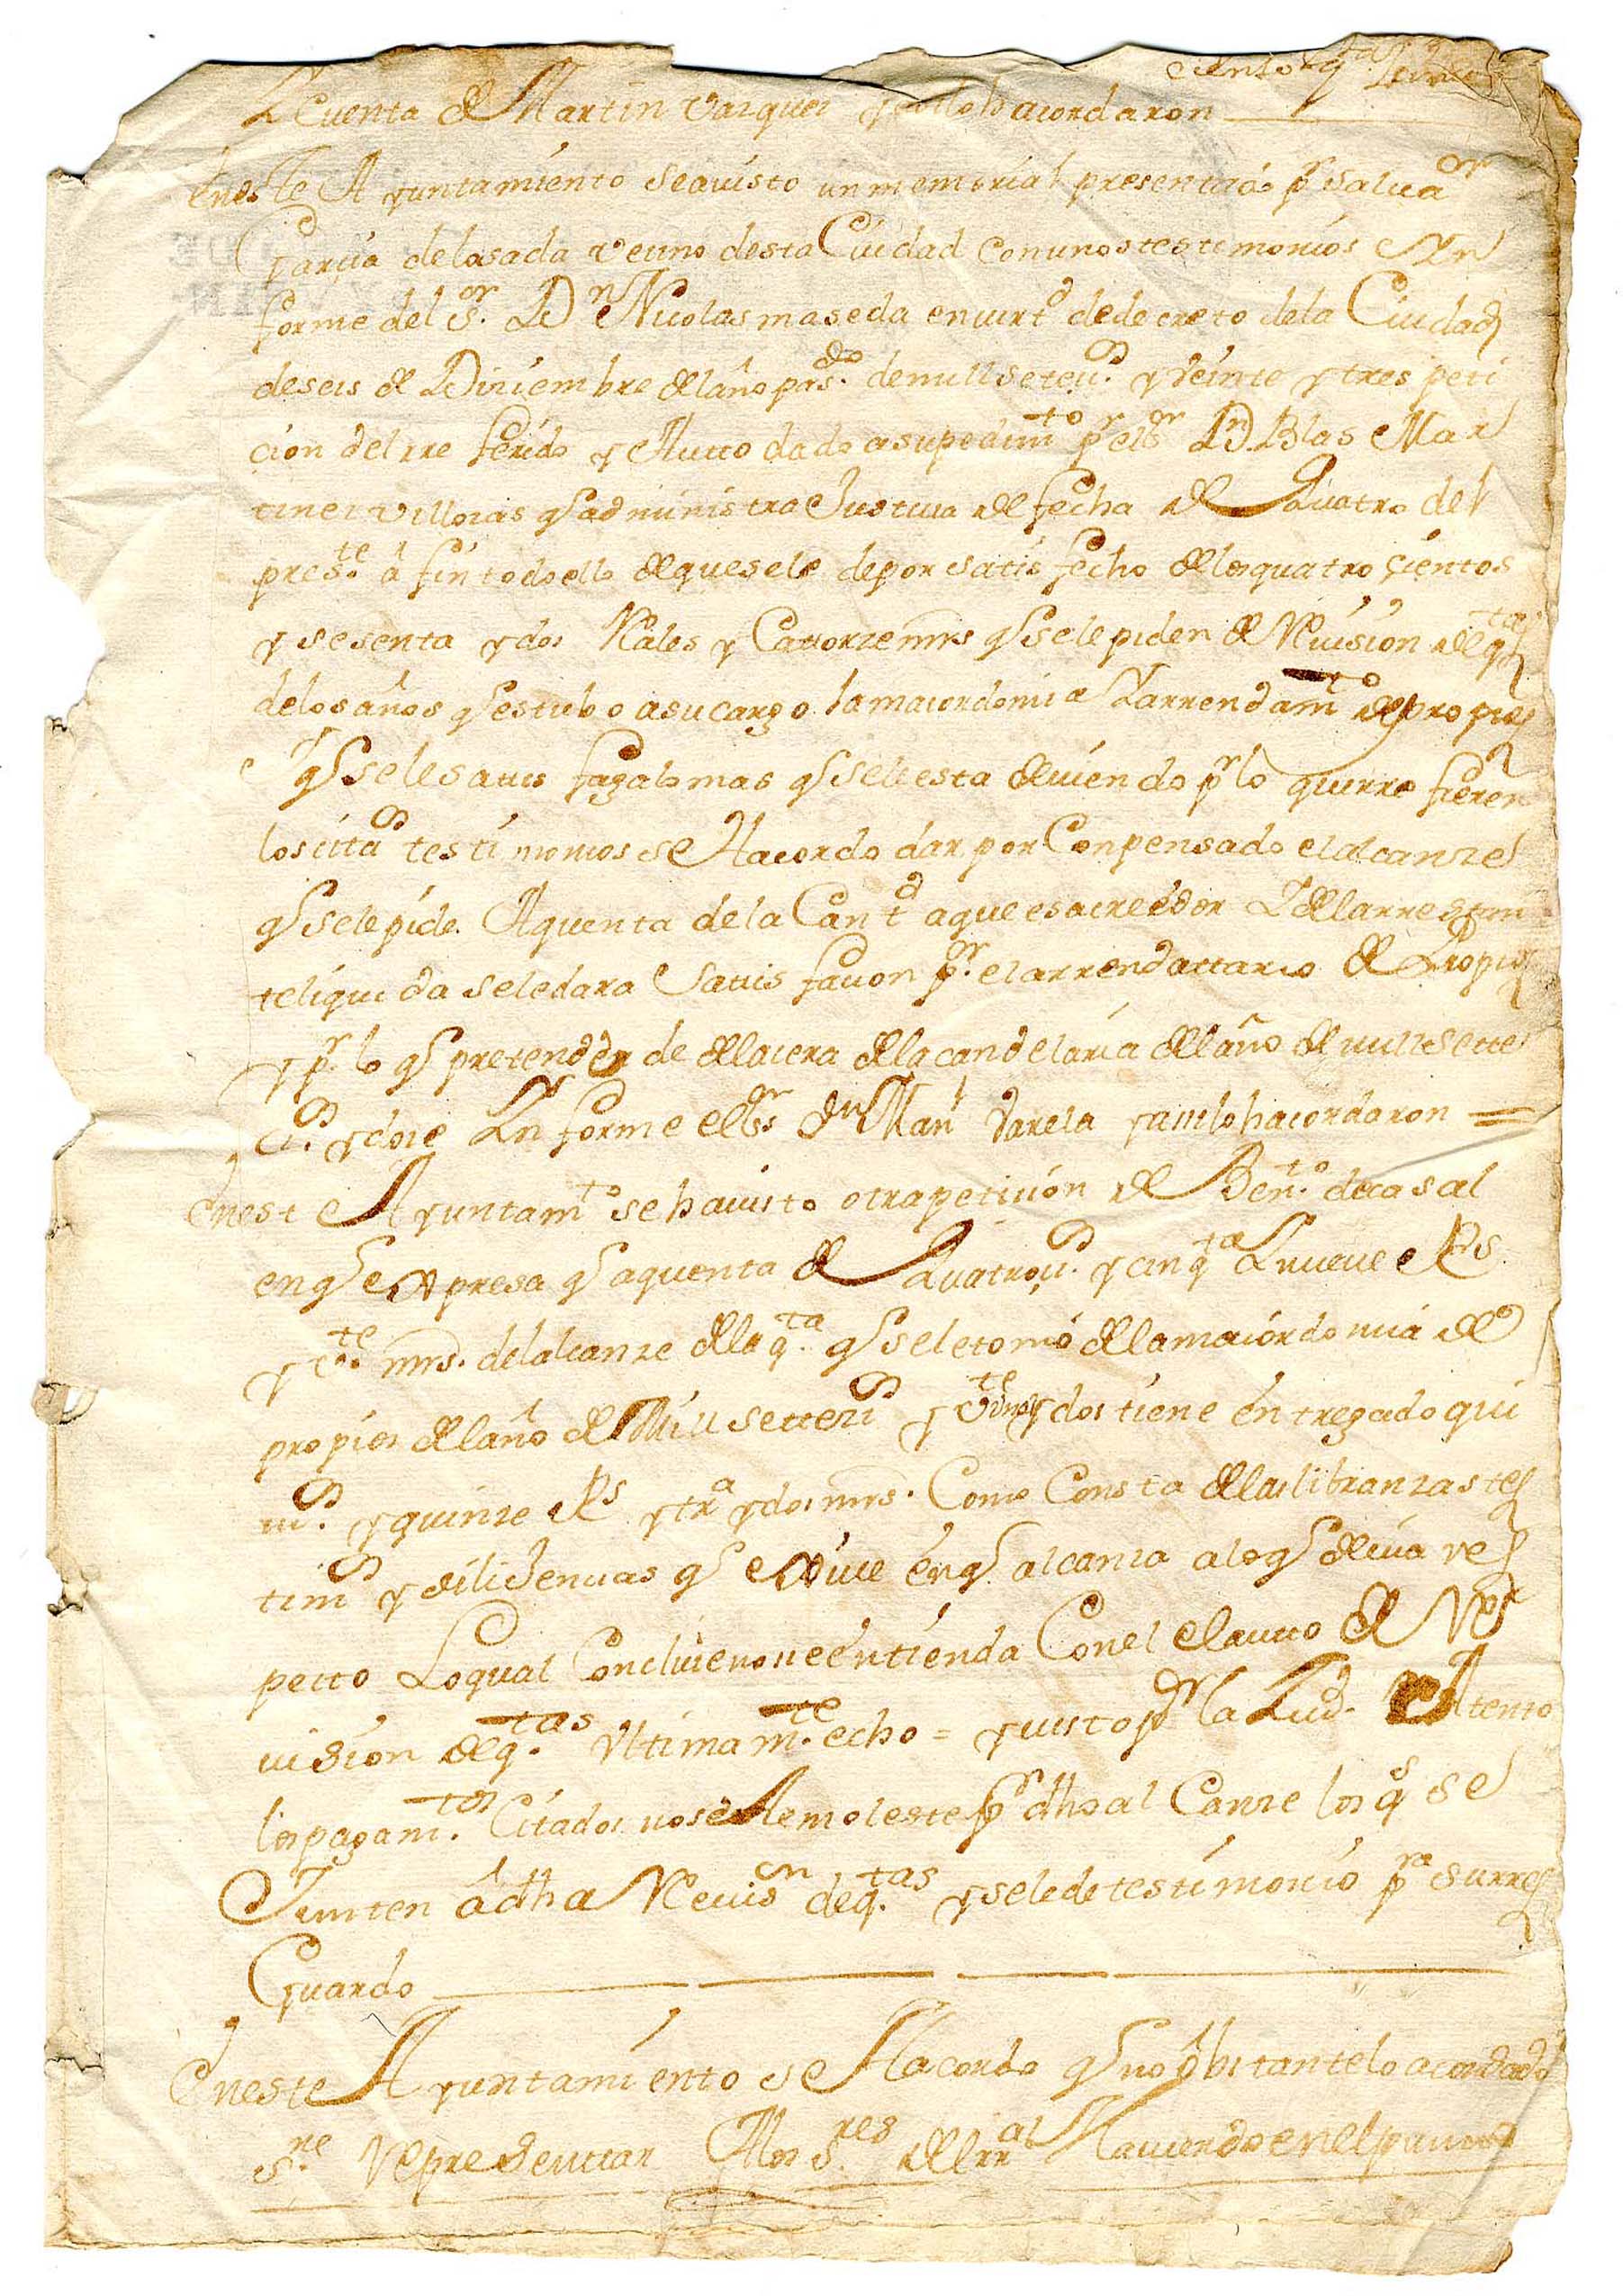 ciento y q.ta y cinco
Y Cuenta de Martin Vazquez y assilo hacordaron
En este Ayuntamiento se a visto un memorial presentado pr Salua.or
Garcia de losada vecino desta Ciudad con unos testimonios e Yn
forme del S.or Dn Nicolas maseda en virt.d de decreto dela Ciudad
de seis de Diziembre del año pas.do de mill seteci.os y veinte y tres peti
cion del rreferido y Autto dado a su pedim.to pr el S.or Dn Blas Mar
tinez villozas q administra Justicia de fecha de Quatro del
pres.te â fin todo ello de que se le de por satisfecho de los quatro çientos
y sesenta y dos Rales y Cattorze mrs q se le piden de Reuision de q.tas
delos años q estubo a su cargo la maiordomia Y arrendam.to de propios
Y q se le satisfaga lo mas q se le esta deuiendo pr lo que rrefieren
los citta.os testimonios se Hacordo dar por Conpensado el alcanze
q se le pide. A quenta de la Cant.d a que es acreedor Y de la rrestan
te liquida se le dara Sattisfacion pr el arrendattario de Propios
y pr lo q pretende de de la cera de la candelaria del año de mill sette
ci.os y doze Ynforme el S.or Dn Man.l Varela y assi lo hacordaron =
En este Ayuntam.to se ha uisto otra peticion de Ben.to de casal
en q expresa q a quenta de Quatroci.os y cinq.ta Y nueue Rs.
y v.te mrs. del alcanze de la q.ta q se le tomó de la maiordomia de
propios del año de Mill settezi.os y veinte y dos tiene entregado qui
ni.os y quinze Rs y tr.a y dos mrs. Como Consta de las libranzas tes
tim.os y dilixencias q exiue en q alcanza a lo q deuia res
petto Lo qual Concluieno se entienda Con el el autto de Re
uision de q.tas Vltimam.te echo = y uisto pr la Ciud. Atento
los pagam.tos Citados no se le moleste pr dho alCanze los q.s se
Junten â dha Reuis.on de q.tas y se le de testimonio p.ra su rres
Guardo
En este Ayuntamiento se Hacordo q no obstante lo acordado
s.re Representtar A los S.res del rr.al Hacuerdo en el punto